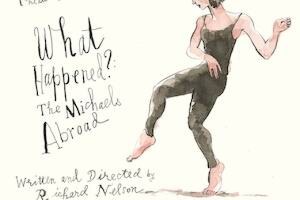 What
Happened?:
The Michaels
Abroad
Written and Directed by
Richard Nelson